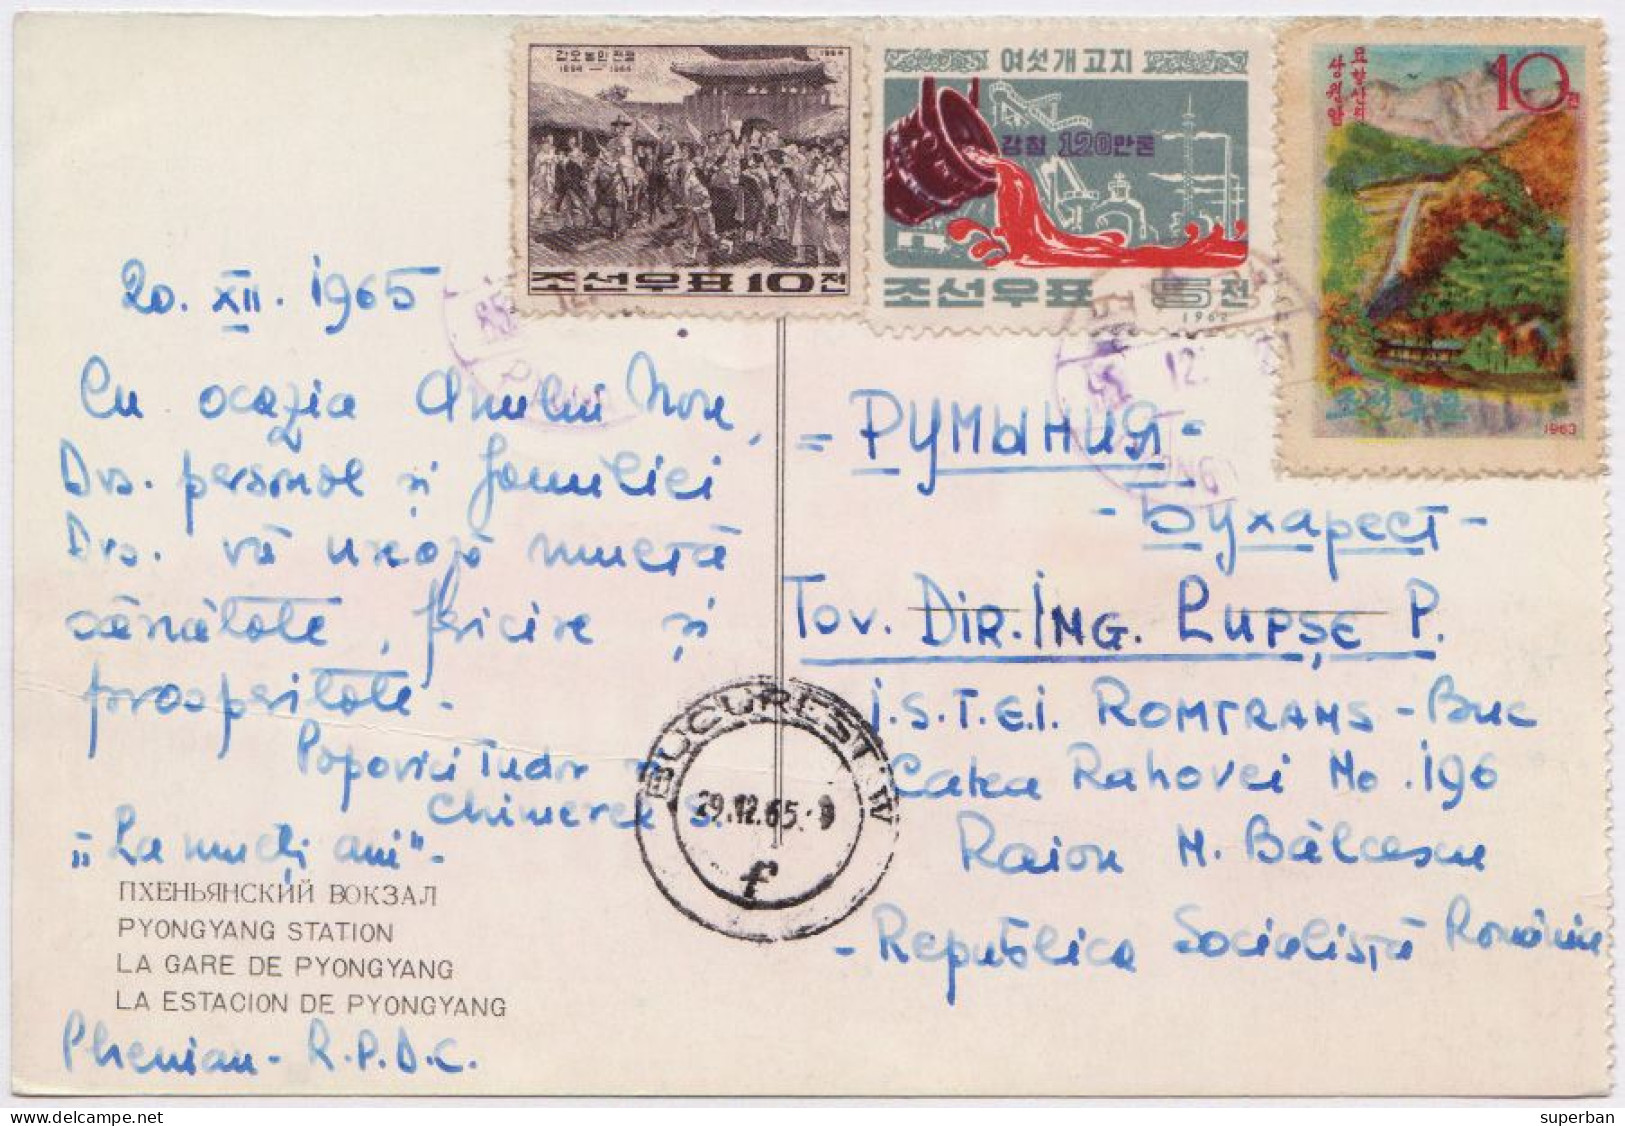 갑오농민전쟁 1964
1894 — 1964
조선우표 10전
여섯개고지
강철 120만톤
조선우표 5전
1962
묘향산의
상원암
10전
조선우표
1963
20. XII. 1965
Cu ocazia Anului Nou,
Dvs. personal și familiei
Dvs. vă urează multă
sănătate, fericire și
prosperitate.
Popovici Tudor
S.
"La mulți ani"-
ПХЕНЬЯНСКИЙ ВОКЗАЛ
PYONGYANG STATION
LA GARE DE PYONGYANG
LA ESTACION DE PYONGYANG
Phenian - R.P.D.C.
= РУМЫНИЯ -
- Бухарест -
Tov. DIR. ING. LUPȘE P.
I.S.T.E.I. ROMTRANS - Buc
Calea Rahovei No. 196
Raion N. Bălcescu
- Republica Socialistă România
BUCUREST
29.12.65
f
superban